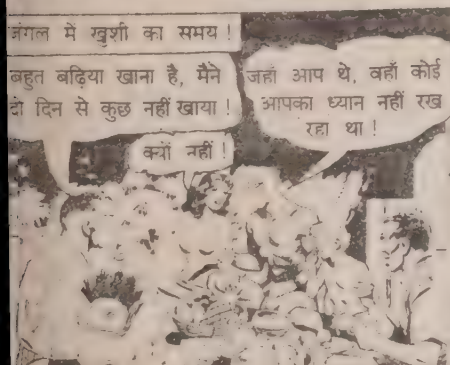 जंगल में खुशी का समय !
बहुत बढ़िया खाना है, मैने
दो दिन से कुछ नहीं खाया !
जहाँ आप थे, वहाँ कोई
आपका ध्यान नहीं रख
रहा था !
क्यों नहीं !